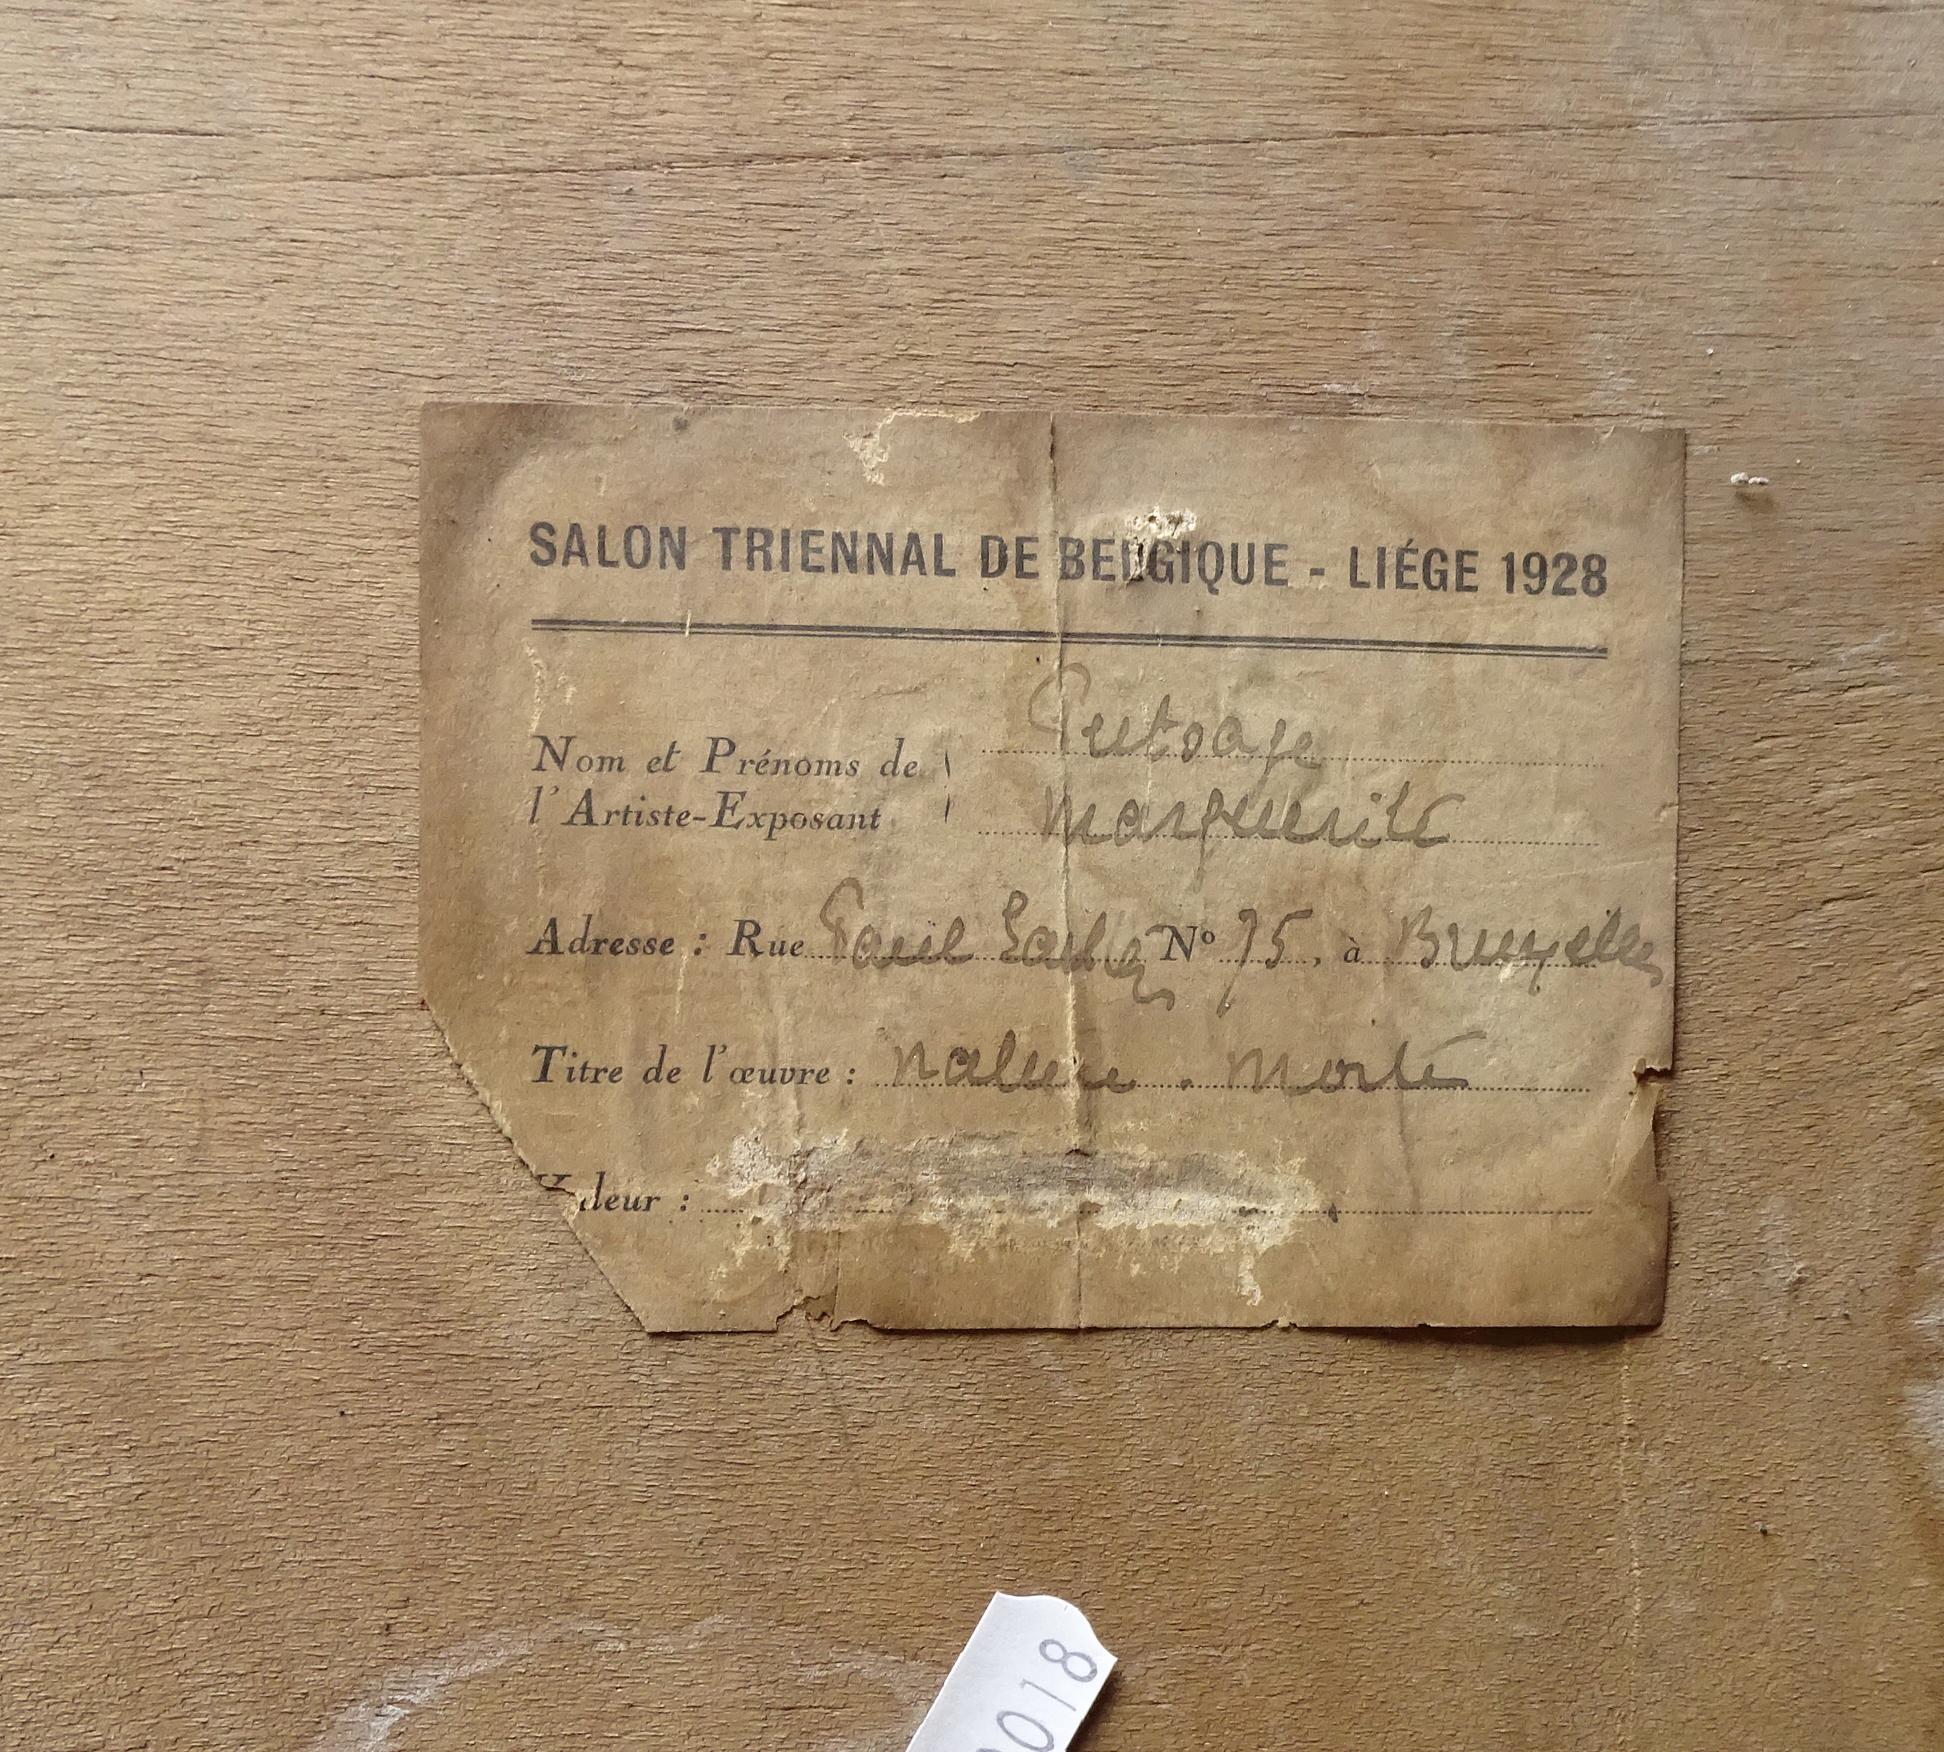 SALON TRIENNAL DE BELGIQUE - LIÉGE 1928
Putsage
Nom et Prénoms de
l'Artiste-Exposant
Marguerite
Adresse : Rue Paul Nº 75, à Bruxelles
Titre de l'œuvre : nature - morte
Valeur :
018